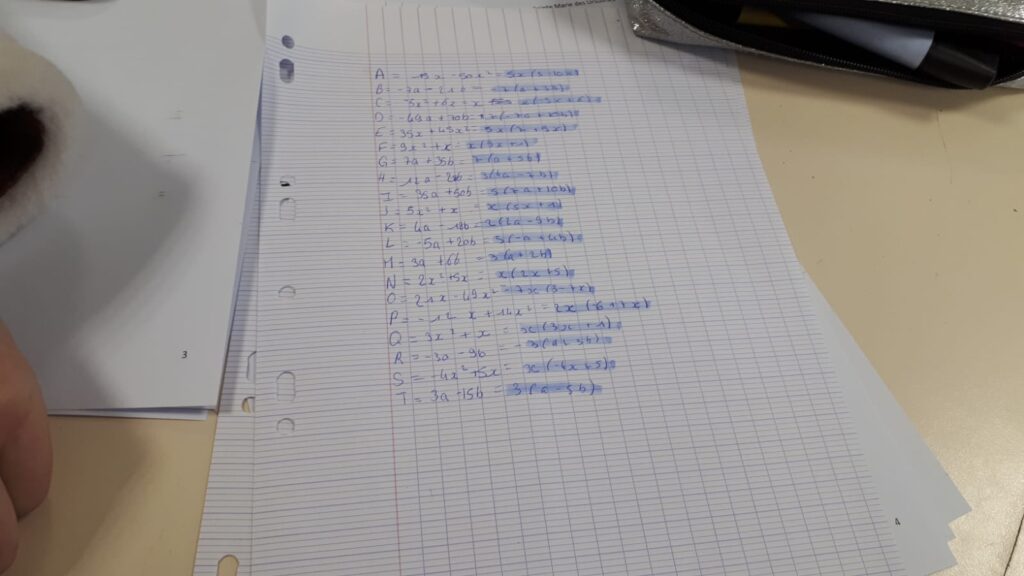 Marie des Ursulines
A = -15x - 50x² = 5x(3-10x)
B = -7a - 21b =
C = -5x²+6x - x
D = -49a + 70b =
E = 35x + 45x² = 5x(7+9x)
F = 9x² + x = x(9x+1)
G = 7a + 35b = 7(a + 5b)
H = 12a - 21b = 3(4a - 7b)
I = 35a + 50b = 5(7a + 10b)
J = 5x² + x = x(5x + 1)
K = 4a - 18b = 2(2a - 9b)
L = -5a + 20b = 5(-a + 4b)
M = 3a + 6b = 3(a + 2b)
N = 2x² + 5x = x(2x + 5)
O = 21x - 49x² = 7x(3-7x)
P = -12x + 14x² = 2x(-6+7x)
Q = 3x² + x = x(3x + 1)
R = -3a - 9b = -3(a + 3b)
S = -4x² + 5x = x(-4x + 5)
T = 3a - 15b = 3(a - 5b)
3
4